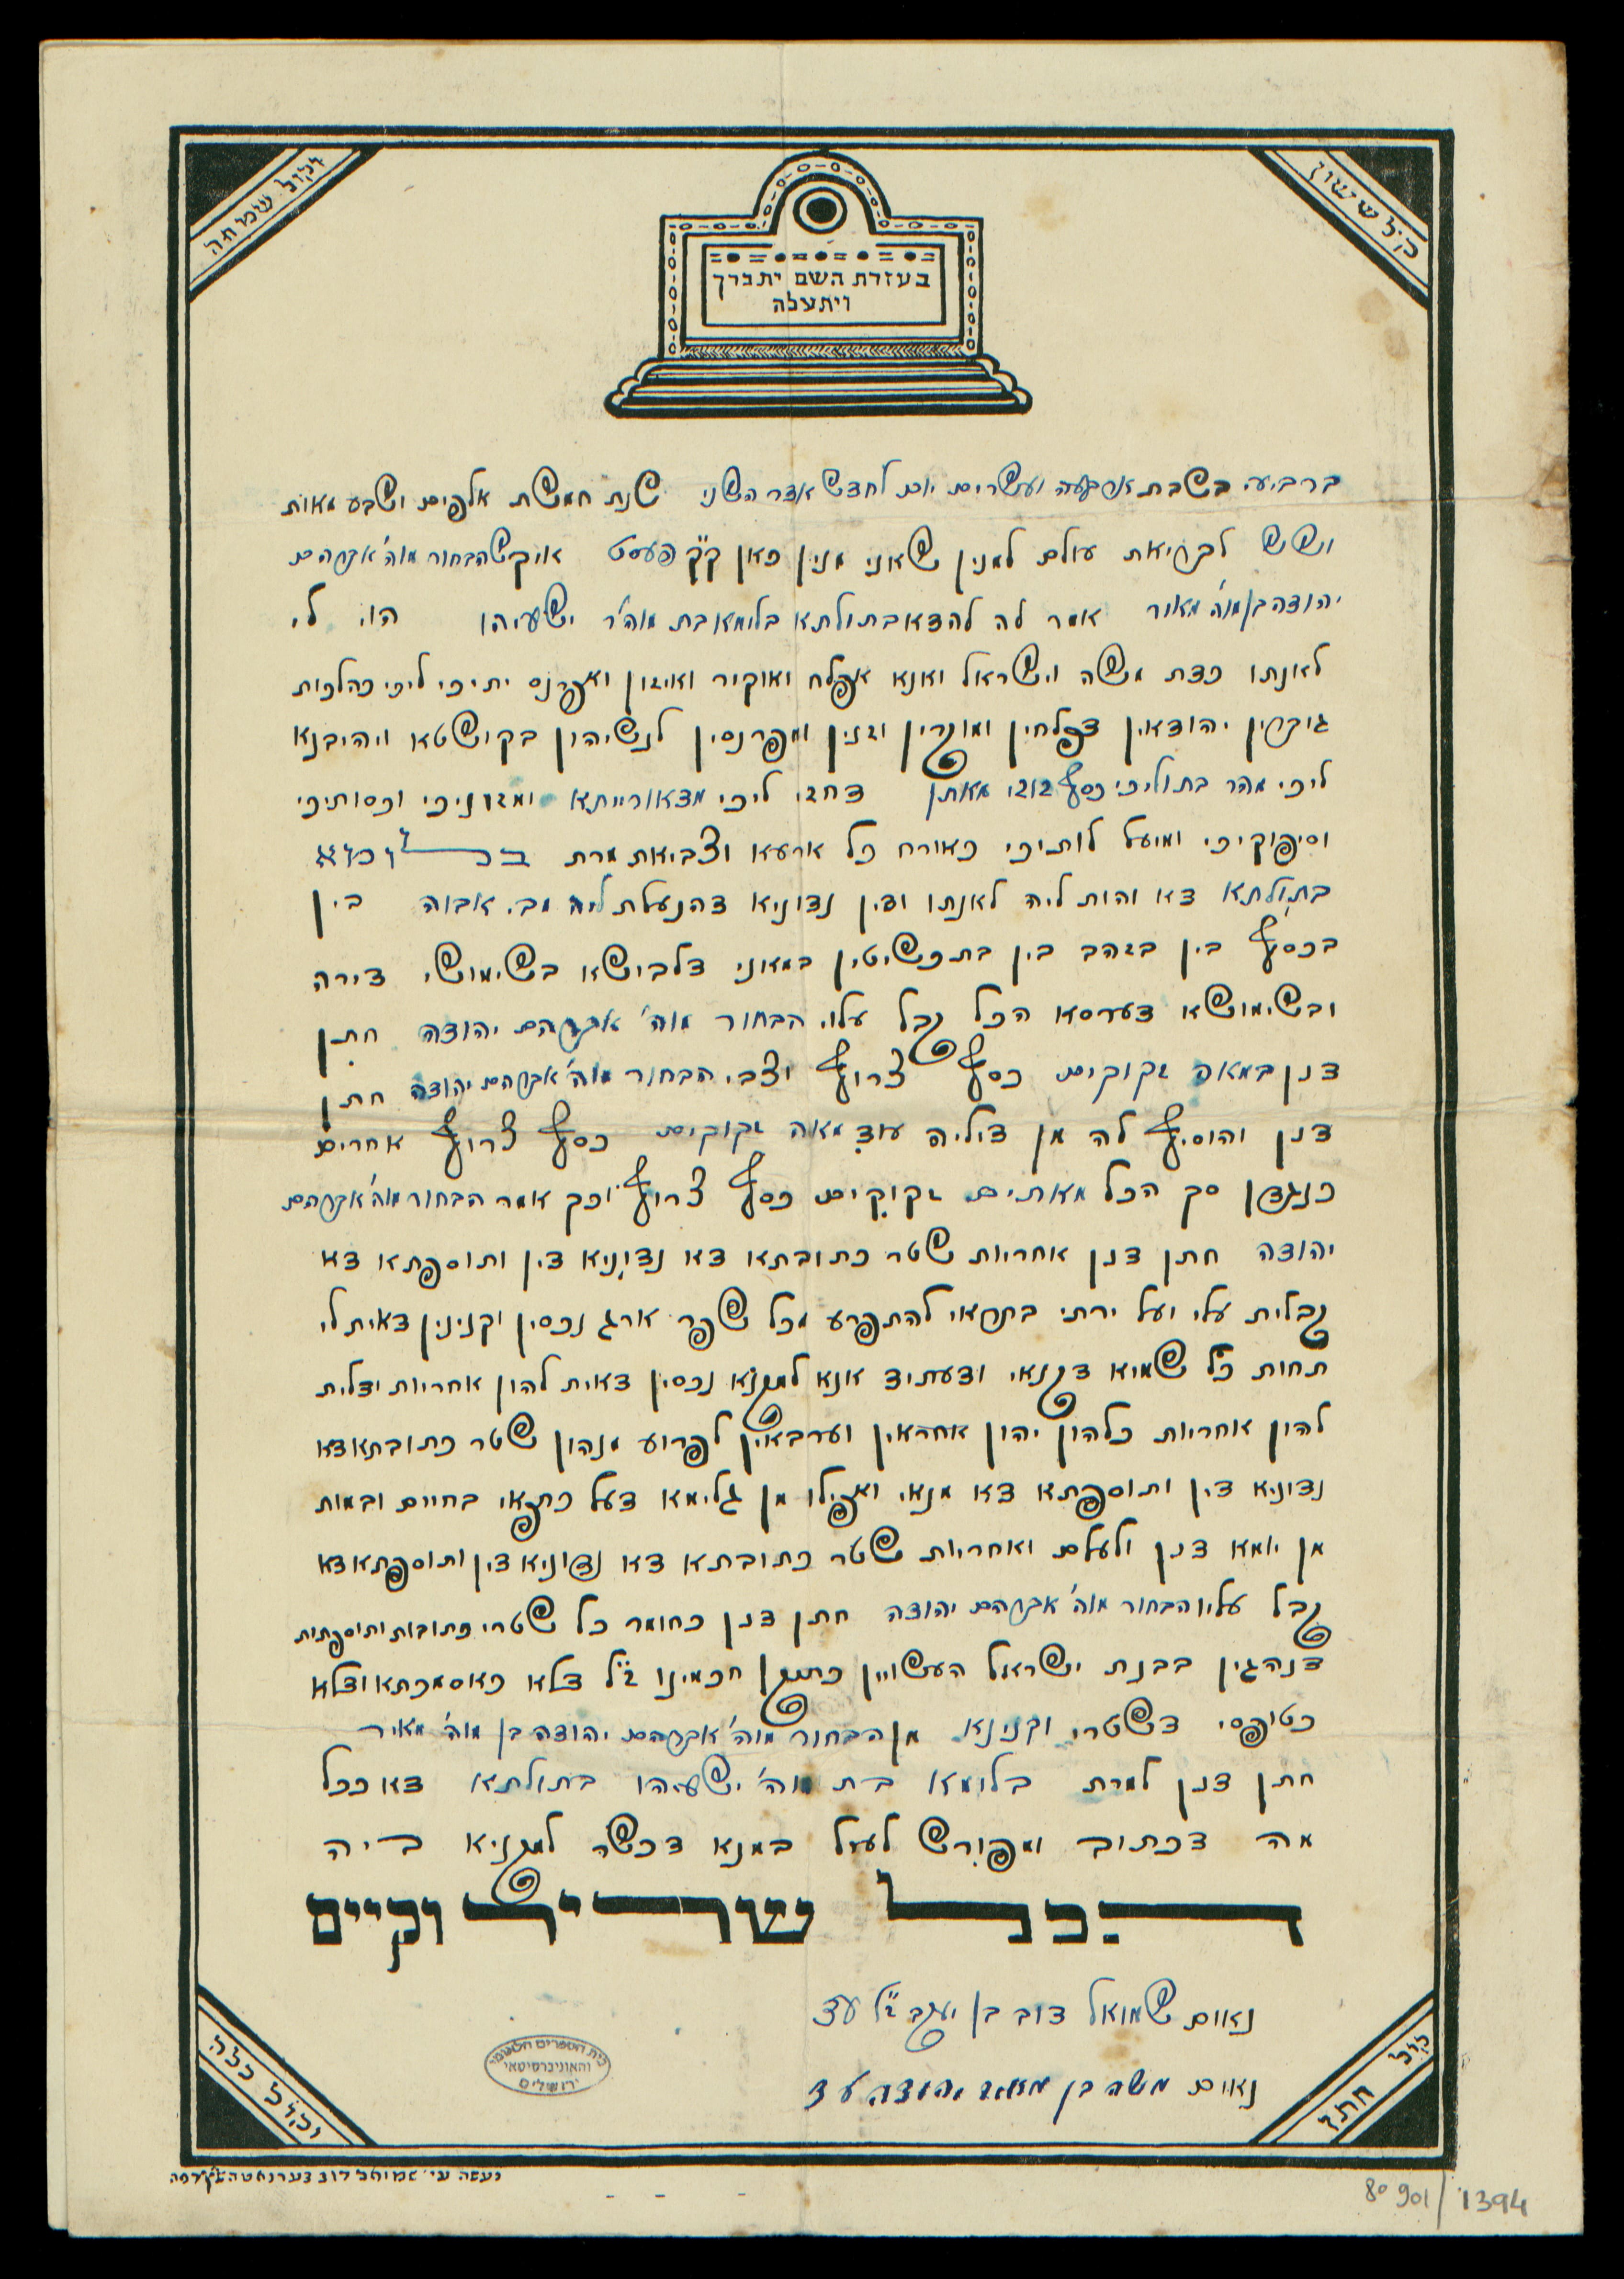 קול ששון
וקול שמחה
בעזרת השם יתברך
ויתעלה
ברביעי בשבת ארבעה ועשרים יום לחדש אדר השני שנת חמשת אלפים ושבע מאות
ושש לבריאת עולם למנין שאני מנין כאן ק״ק פעסט איך הבחור מוה׳ אברהם
יהודה בן מוה׳ מאיר אמר לה להדא בתולתא בלומא בת מוה״ר ישעיהו הוי לי
לאנתו כדת משה וישראל ואנא אפלח ואוקיר ואיזון ואפרנס יתיכי ליכי כהלכות
גוברין יהודאין דפלחין ומוקרין וזנין ומפרנסין לנשיהון בקושטא ויהיבנא
ליכי מהר בתוליכי כסף זוזי מאתן דחזי ליכי מדאורייתא ומזוניכי וכסותיכי
וסיפוקיכי ומיעל לותיכי כאורח כל ארעא וצביאת מרת
בתולתא דא והות ליה לאנתו ודין נדוניא דהנעלת ליה מבי אבוה בין
בכסף בין בזהב בין בתכשיטין במאני דלבושא בשימושי דירה
ובשימושא דערסא הכל קבל עליו הבחור מוה׳ אברהם יהודה חתן
דנן במאה זקוקים כסף צרוף וצבי הבחור מוה׳ אברהם יהודה חתן
דנן והוסיף לה מן דיליה עוד מאה זקוקים כסף צרוף אחרים
כנגדן סך הכל מאתים זקוקים כסף צרוף וכך אמר הבחור מוה׳ אברהם
יהודה חתן דנן אחריות שטר כתובתא דא נדוניא דין ותוספתא דא
קבלית עלי ועל ירתי בתראי להתפרע מכל שפר ארג נכסין וקנינין דאית לי
תחות כל שמיא דקנאי ודעתיד אנא למקנא נכסין דאית להון אחריות ודלית
להון אחריות כלהון יהון אחראין וערבאין לפרוע מנהון שטר כתובתא דא
נדוניא דין ותוספתא דא מנאי ואפילו מן גלימא דעל כתפאי בחיים ובמות
מן יומא דנן ולעלם ואחריות שטר כתובתא דא נדוניא דין ותוספתא דא
קבל עליו הבחור מוה׳ אברהם יהודה חתן דנן כחומר כל שטרי כתובות ותוספתות
דנהגין בבנת ישראל העשויין כתקון חכמינו ז״ל דלא כאסמכתא ודלא
כטופסי דשטרי וקנינא מן הבחור מוה׳ אברהם יהודה בן מוה׳ מאיר
חתן דנן למרת בלומא בת מוה׳ ישעיהו בתולתא דא ככל
מה דכתוב ומפורש לעיל במנא דכשר למקניא ביה
הכל שריר וקיים
נאום שמואל דוב בן יעקב ז״ל עד
נאום משה בן יהודה עד
קול חתן
וקול כלה
בית הספרים הלאומי
והאוניברסיטאי
ירושלים
נעשה ע״י שמואל דוב
80 901/1394